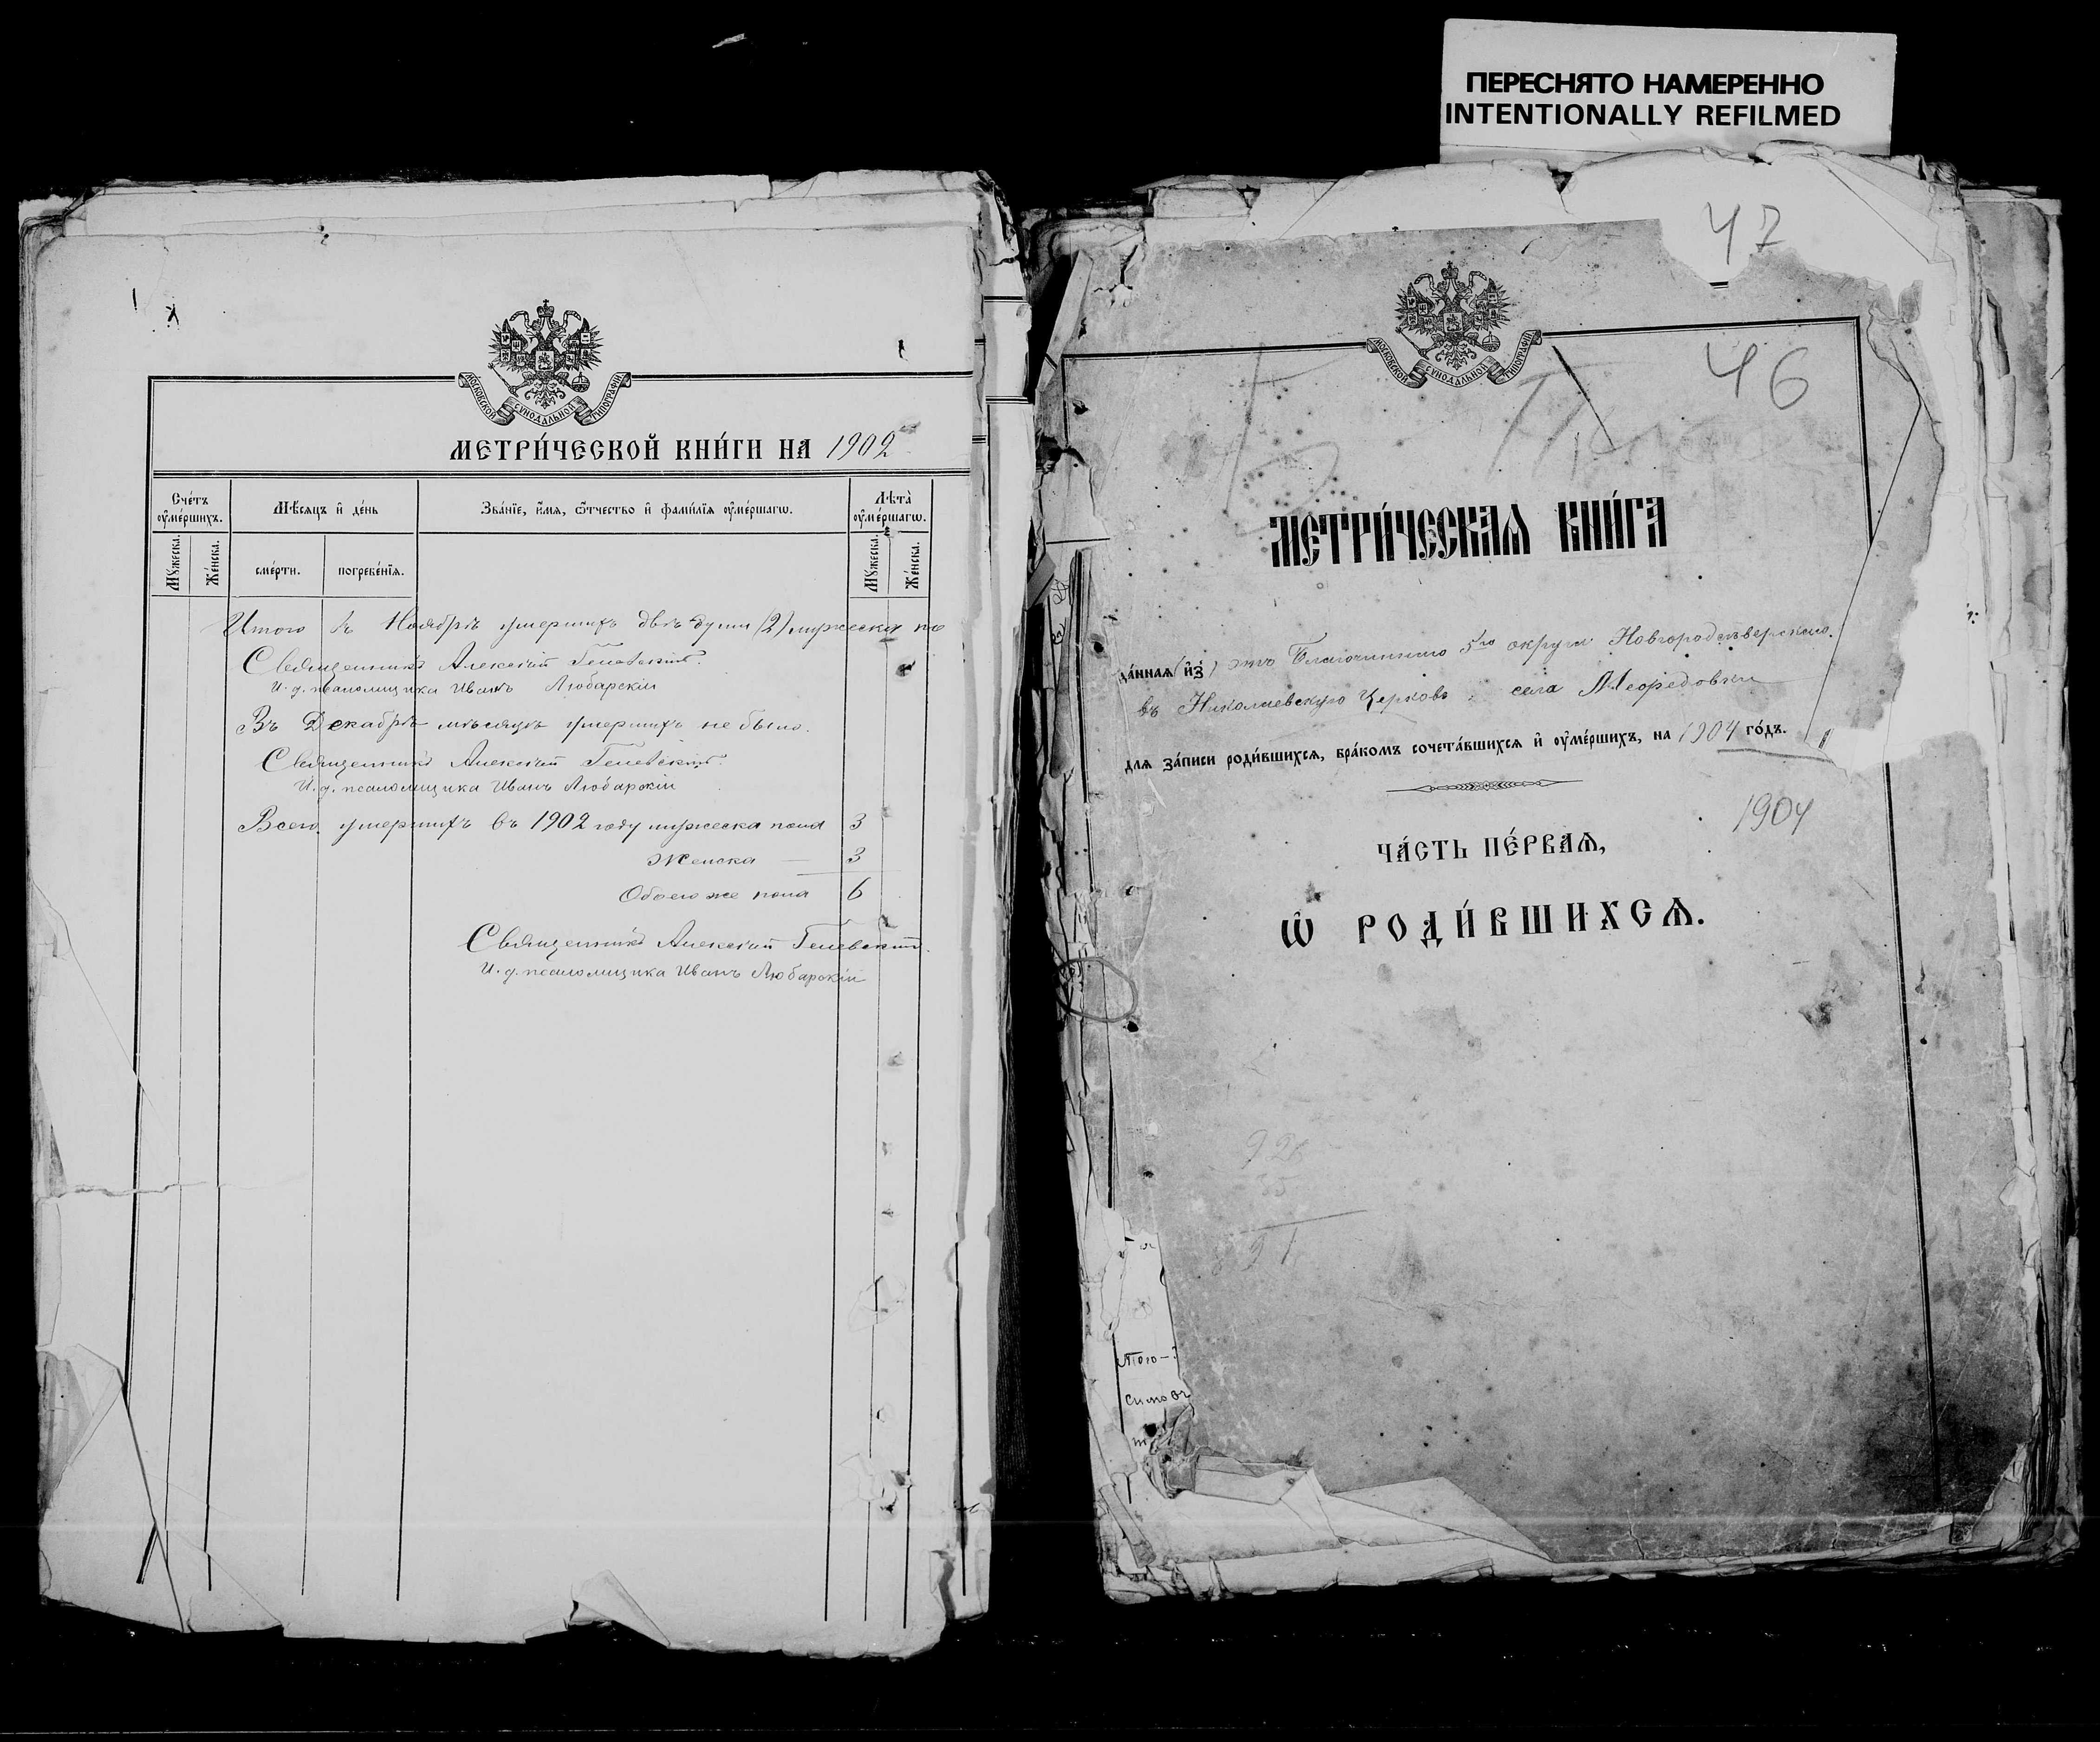 ПЕРЕСНЯТО НАМЕРЕННО
INTENTIONALLY REFILMED
МОСКОВСКОЙ СѴНОДАЛЬНОЙ ТИПОГРАФІИ
МЕТРИ́ЧЕСКОЙ КНИ́ГИ НА 1902
Сче́тъ оу҆ме́ршихъ.
Мѣ́сяцъ и҆ де́нь
Зва́нїе, и҆́мя, ѻ҆́тчество и҆ фами́лїя оу҆ме́ршагѡ.
Лѣ́та оу҆ме́ршагѡ.
Мꙋ́жеска.
Же́нска.
сме́рти.
погребе́нїя.
Мꙋ́жеска.
Же́нска.
Итого въ Ноябрѣ умершихъ двѣ души (2) мужеска по
Священникъ Алексій
И. д. псаломщика Иванъ Любарскій
Въ Декабрѣ мѣсяцѣ умершихъ не было.
Священникъ Алексій
И. д. псаломщика Иванъ Любарскій
Всего умершихъ въ 1902 году мужеска пола 3
Женска — 3
Обоего же пола 6
Священникъ Алексій
И. д. псаломщика Иванъ Любарскій
47
МОСКОВСКОЙ СѴНОДАЛЬНОЙ ТИПОГРАФІИ
46
МЕТРИ́ЧЕСКАЯ КНИ́ГА
да́нная (и҆з) отъ Благочиннаго 5го округа Новгородсѣверскаго.
въ Николаевскую Церковь, села
для за́писи роди́вшихся, бра́комъ сочета́вшихся и҆ оу҆ме́ршихъ, на 1904 го́дъ.
1904
ЧА́СТЬ ПЕ́РВАЯ,
Ѡ҆ РОДИ́ВШИХСЯ.